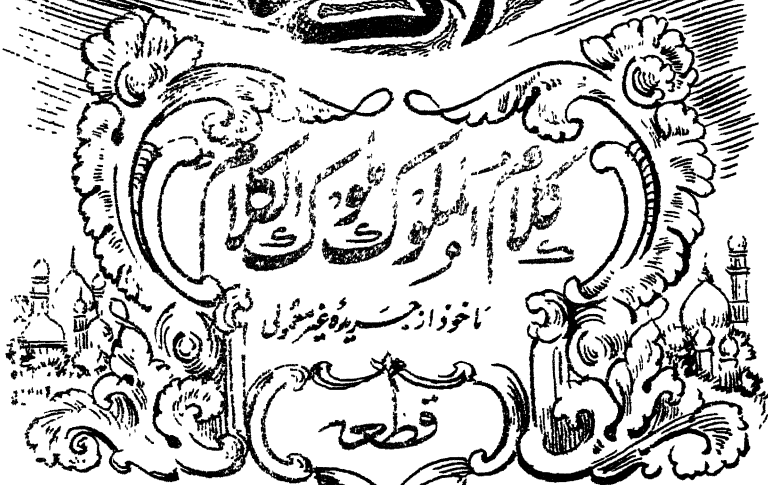 کلام الملوک و ملوک الکلام
ماخوذ از جریدهٔ غیر معمولی
قطعہ